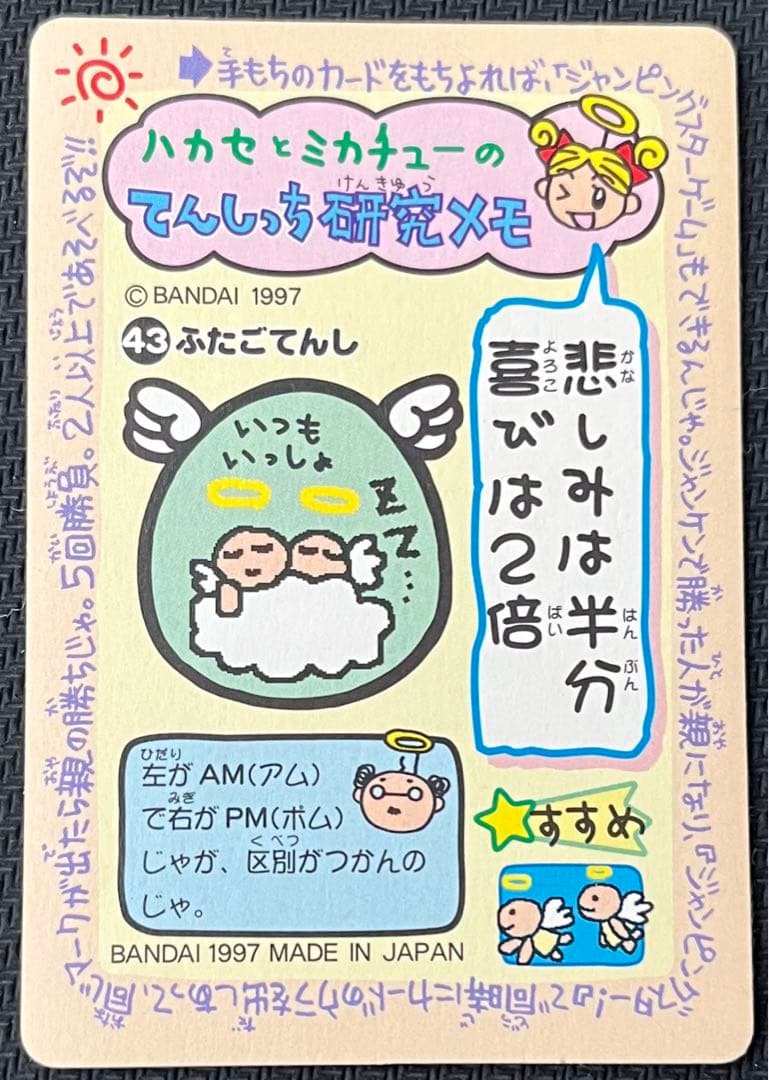 手もちのカードをもちよれば、「ジャンピングスターゲーム」もできるんじゃ。ジャンケンで勝った人が親になり、『ジャンピングスター!』で同時にカードのウラを出しあって、同じマークが出たら親の勝ちじゃ。5回勝負。2人以上であそべるぞ!!
ハカセとミカチューの
てんしっち研究メモ
©BANDAI 1997
43 ふたごてんし
いつも
いっしょ
ZZ…
悲しみは半分
喜びは2倍
左がAM(アム)
で右がPM(ポム)
じゃが、区別がつかんの
じゃ。
すすめ
BANDAI 1997 MADE IN JAPAN